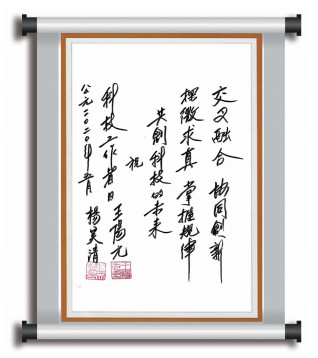 交叉融合 协同創新
探微求真 掌握規律
共創科技的未来
祝
科技工作者日 王陽元
公元二〇二〇年五月 楊芙清